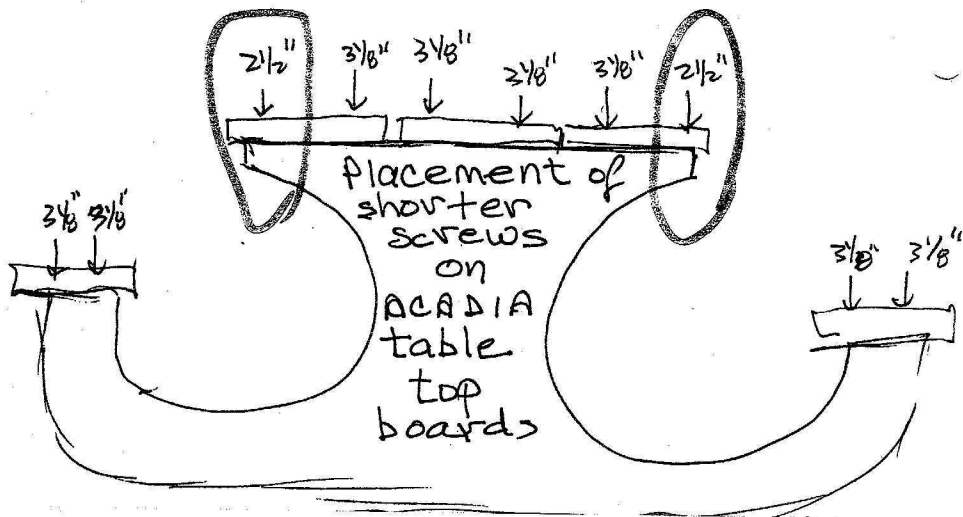 2½" 3⅛" 3⅛" 3⅛" 3⅛" 2½"
Placement of
shorter
screws
on
ACADIA
table
top
boards
3⅛" 3⅛"
3⅛" 3⅛"